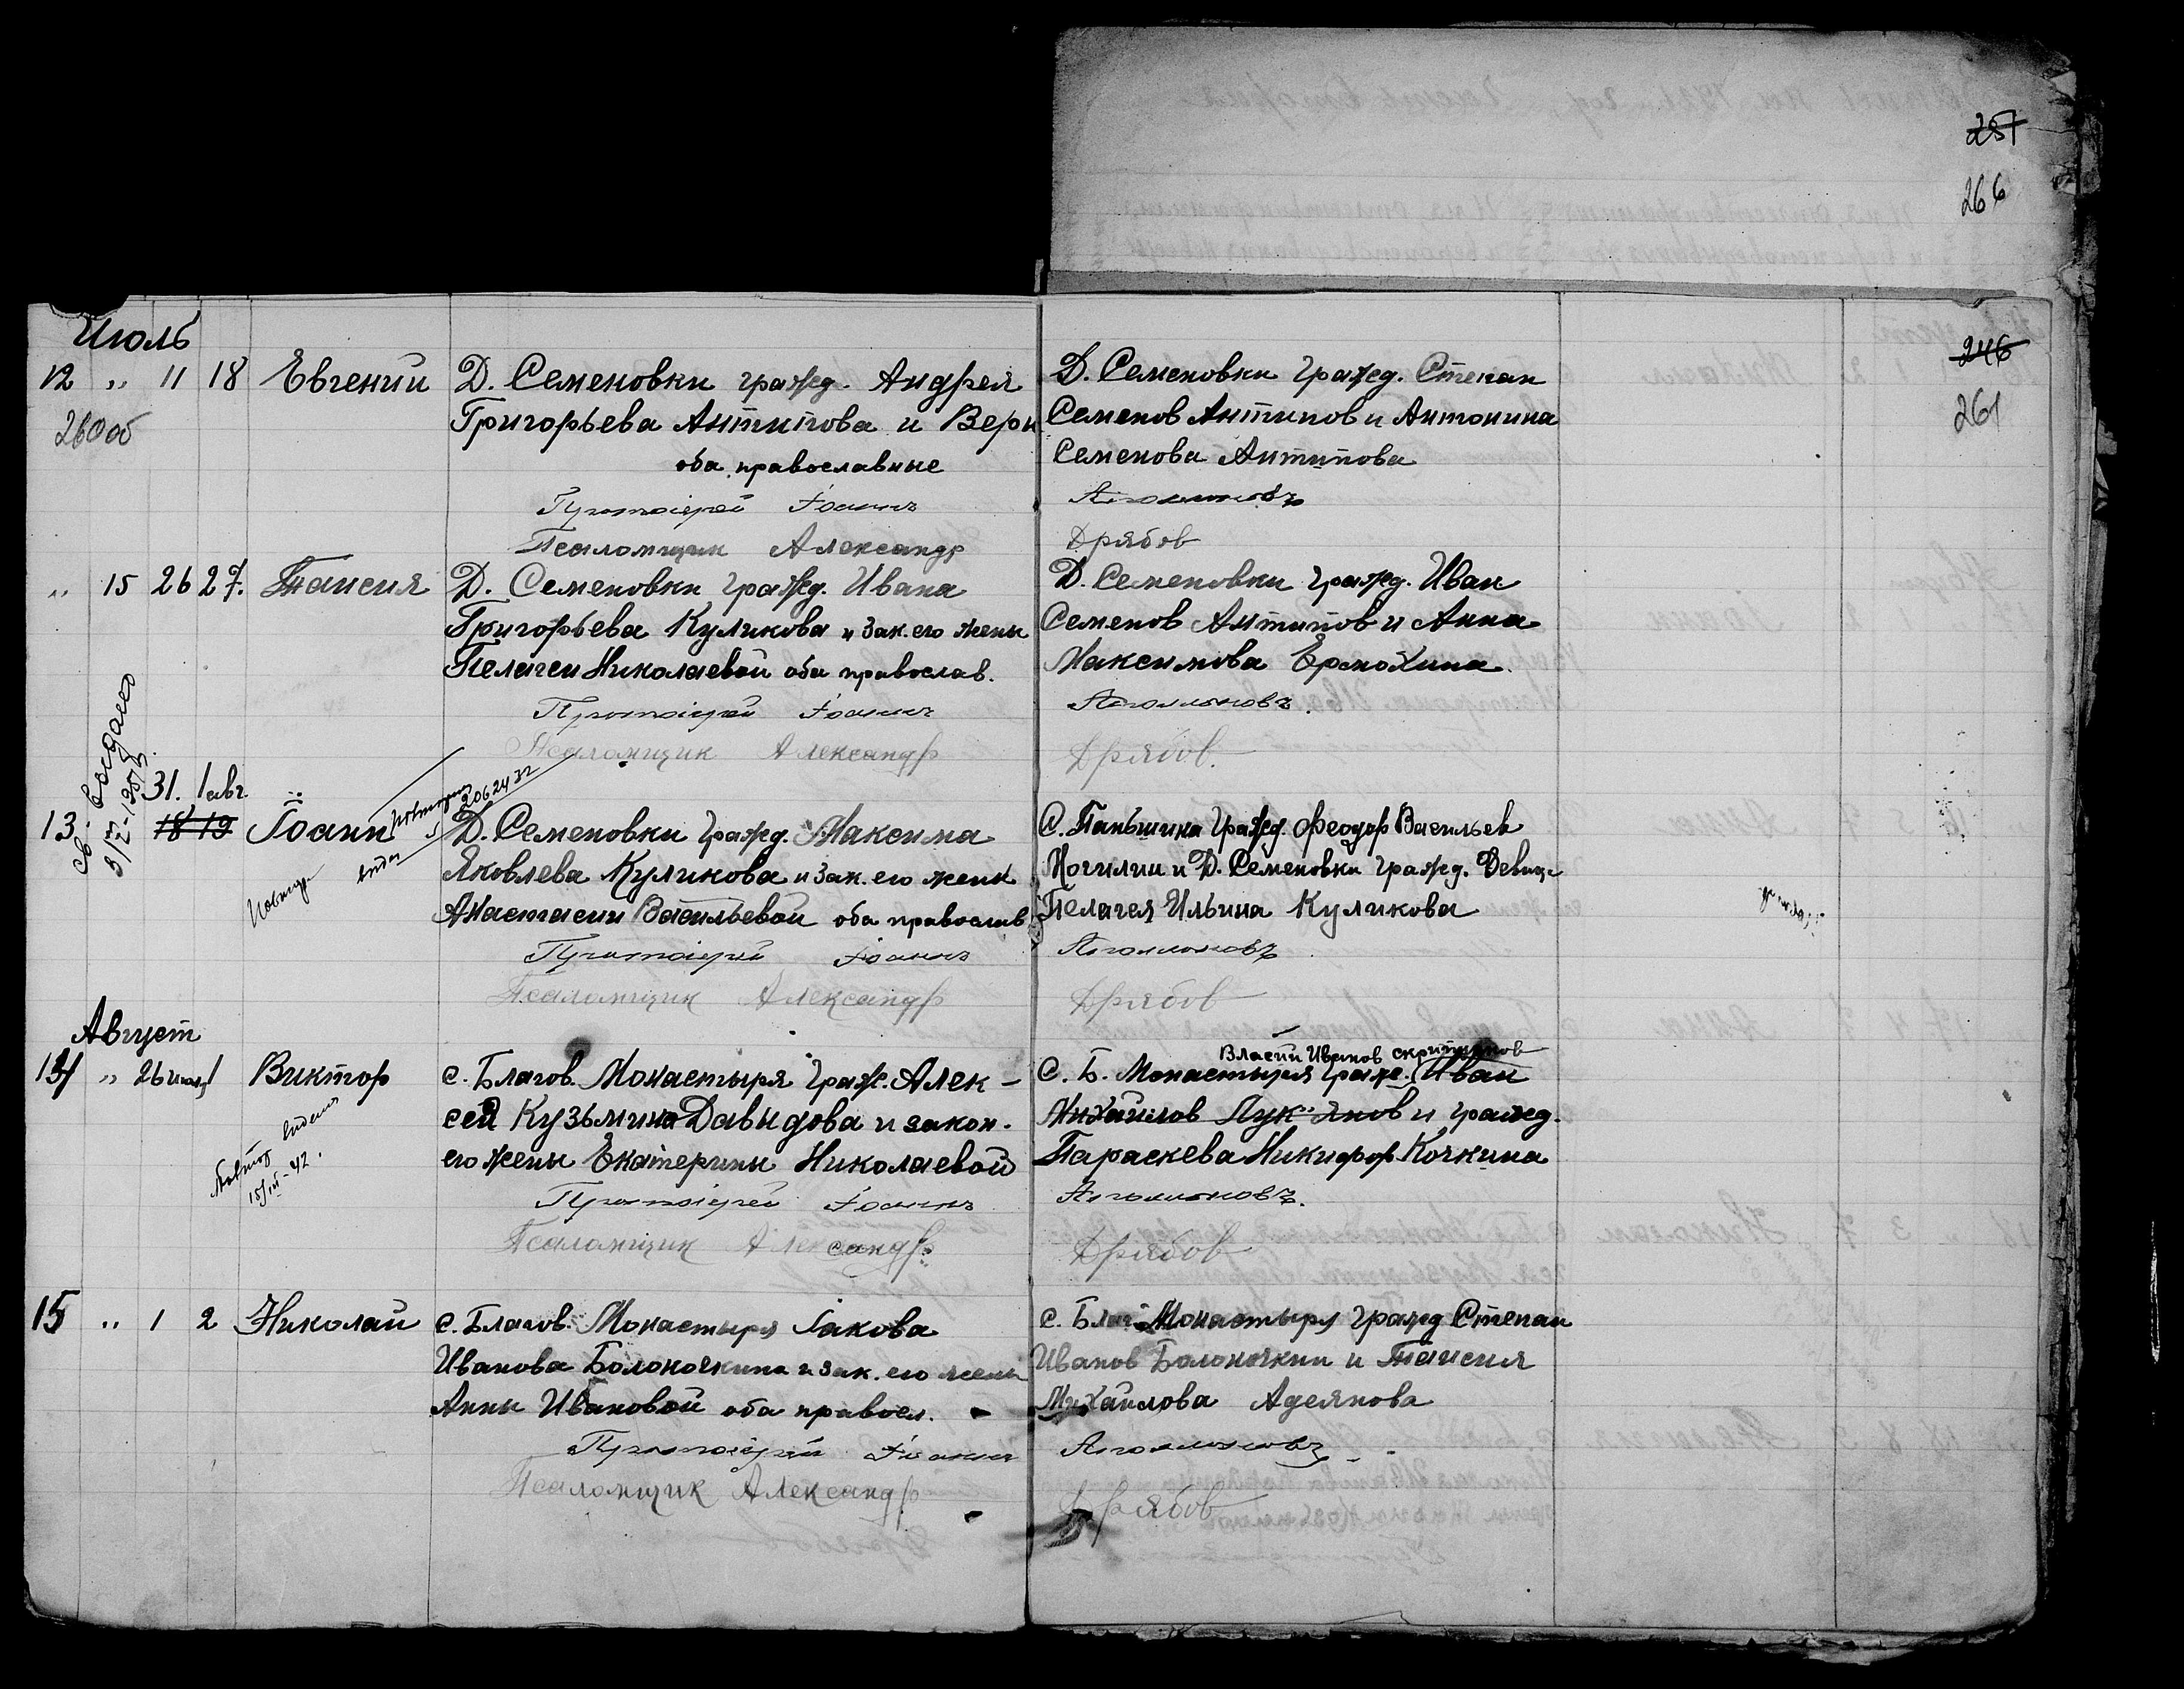 257
266
246
261
Июль
12 " 11 18 Евгений
260об
Д. Семеновки гражд. Андрея
Григорьева Антипова и Веры
оба православные
Протоіерей Іоаннъ
Псаломщик Александр
Д. Семеновки гражд. Степан
Семенов Антипов и Антонина
Семенова Антипова
Дрябов
" 15 26 27. Таисия
Д. Семеновки гражд. Ивана
Григорьева Куликова и зак. его жены
Пелагеи Николаевой оба православ.
Протоіерей Іоаннъ
Псаломщик Александр
Д. Семеновки гражд. Иван
Семенов Антипов и Анна
Максимова Ермохина.
Дрябов.
31. 1 авг.
13. 18 19 Іоанн
Д. Семеновки гражд. Максима
Яковлева Куликова и зак. его жены
Анастасии Васильевой оба православ
Протоіерей Іоаннъ
Псаломщик Александр
С. Паньшина гражд. Феодор Васильев
Мочилин и Д. Семеновки гражд. Девица
Пелагея Ильина Куликова
Дрябов
Август
14 " 26 июля 1 Виктор
15/III-42.
с. Благов. Монастыря гражд. Алек-
сея Кузьмина Давыдова и закон.
его жены Екатерины Николаевой
Протоіерей Іоаннъ
Псаломщик Александр.
Власий Иванов
С. Б. Монастыря гражд. Иван
Михайлов Лукьянов и гражд.
Параскева Никифор. Кочкина
Дрябов
15 " 1 2 Николай
с. Благов. Монастыря Іакова
Иванова Болоночкина и зак. его жены
Анны Ивановой оба правосл.
Протоіерей Іоаннъ
Псаломщик Александр
с. Благ. Монастыря гражд Степан
Иванов Болоночкин и Таисия
Михайлова Аделянова
Дрябов